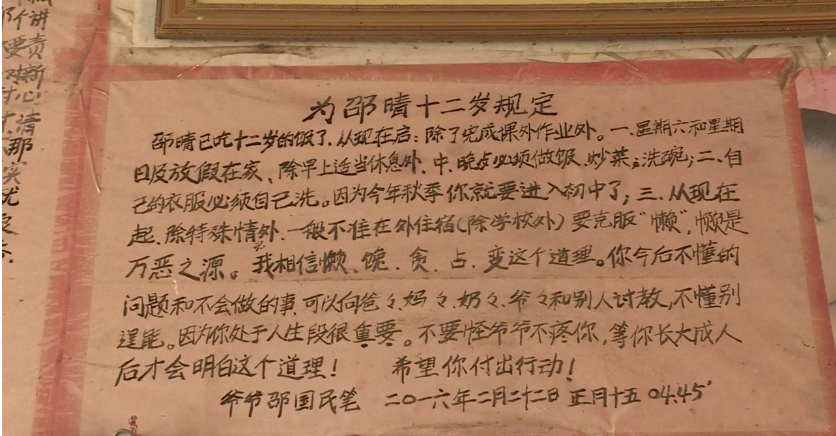 为邵晴十二岁规定
邵晴已吃十二岁的饭了.从现在启:除了完成课外作业外。一.星期六和星期
日及放假在家、除早上适当休息外、中、晚点必须做饭、炒菜;洗碗;二、自
己的衣服必须自己洗。因为今年秋季你就要进入初中了;三、从现在
起.除特殊情外.一般不准在外住宿(除学校外)要克服“懒”,懒是
万恶之源。我相信懒、馋、贪、占、变这个道理。你今后不懂的
问题和不会做的事可以向爸々、妈々、奶々、爷々和别人讨教,不懂别
逞能。因为你处于人生段很重要。不要怪爷爷不疼你,等你长大成人
后才会明白这个道理! 希望你付出行动!
爷爷邵国民笔 二〇一六年二月二十二日 正月十五 04.45'